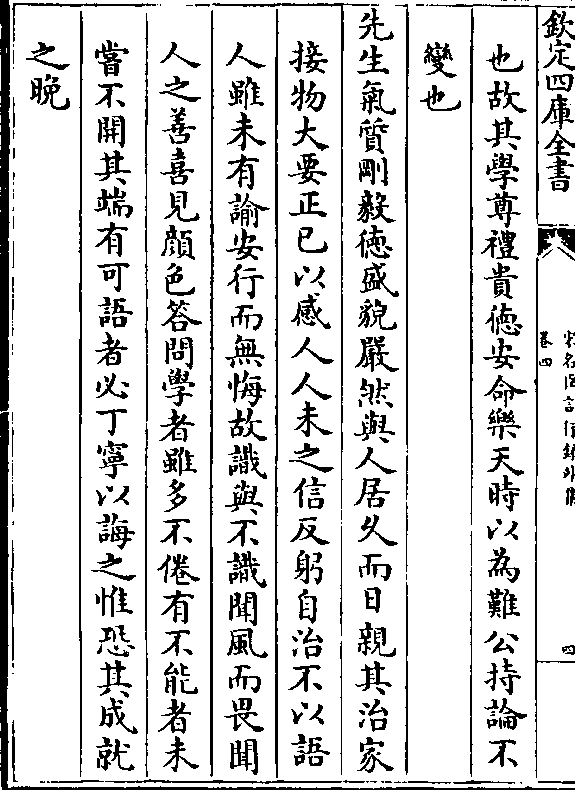 欽定四庫全書
卷四
四
也故其學尊禮貴徳安命樂天時以為難公持論不
變也
先生氣質剛毅徳盛貌嚴然與人居久而日親其治家
接物大要正已以感人人未之信反躬自治不以語
人雖未有諭安行而無悔故識與不識聞風而畏聞
人之善喜見顔色答問學者雖多不倦有不能者未
嘗不開其端有可語者必丁寧以誨之惟恐其成就
之晚